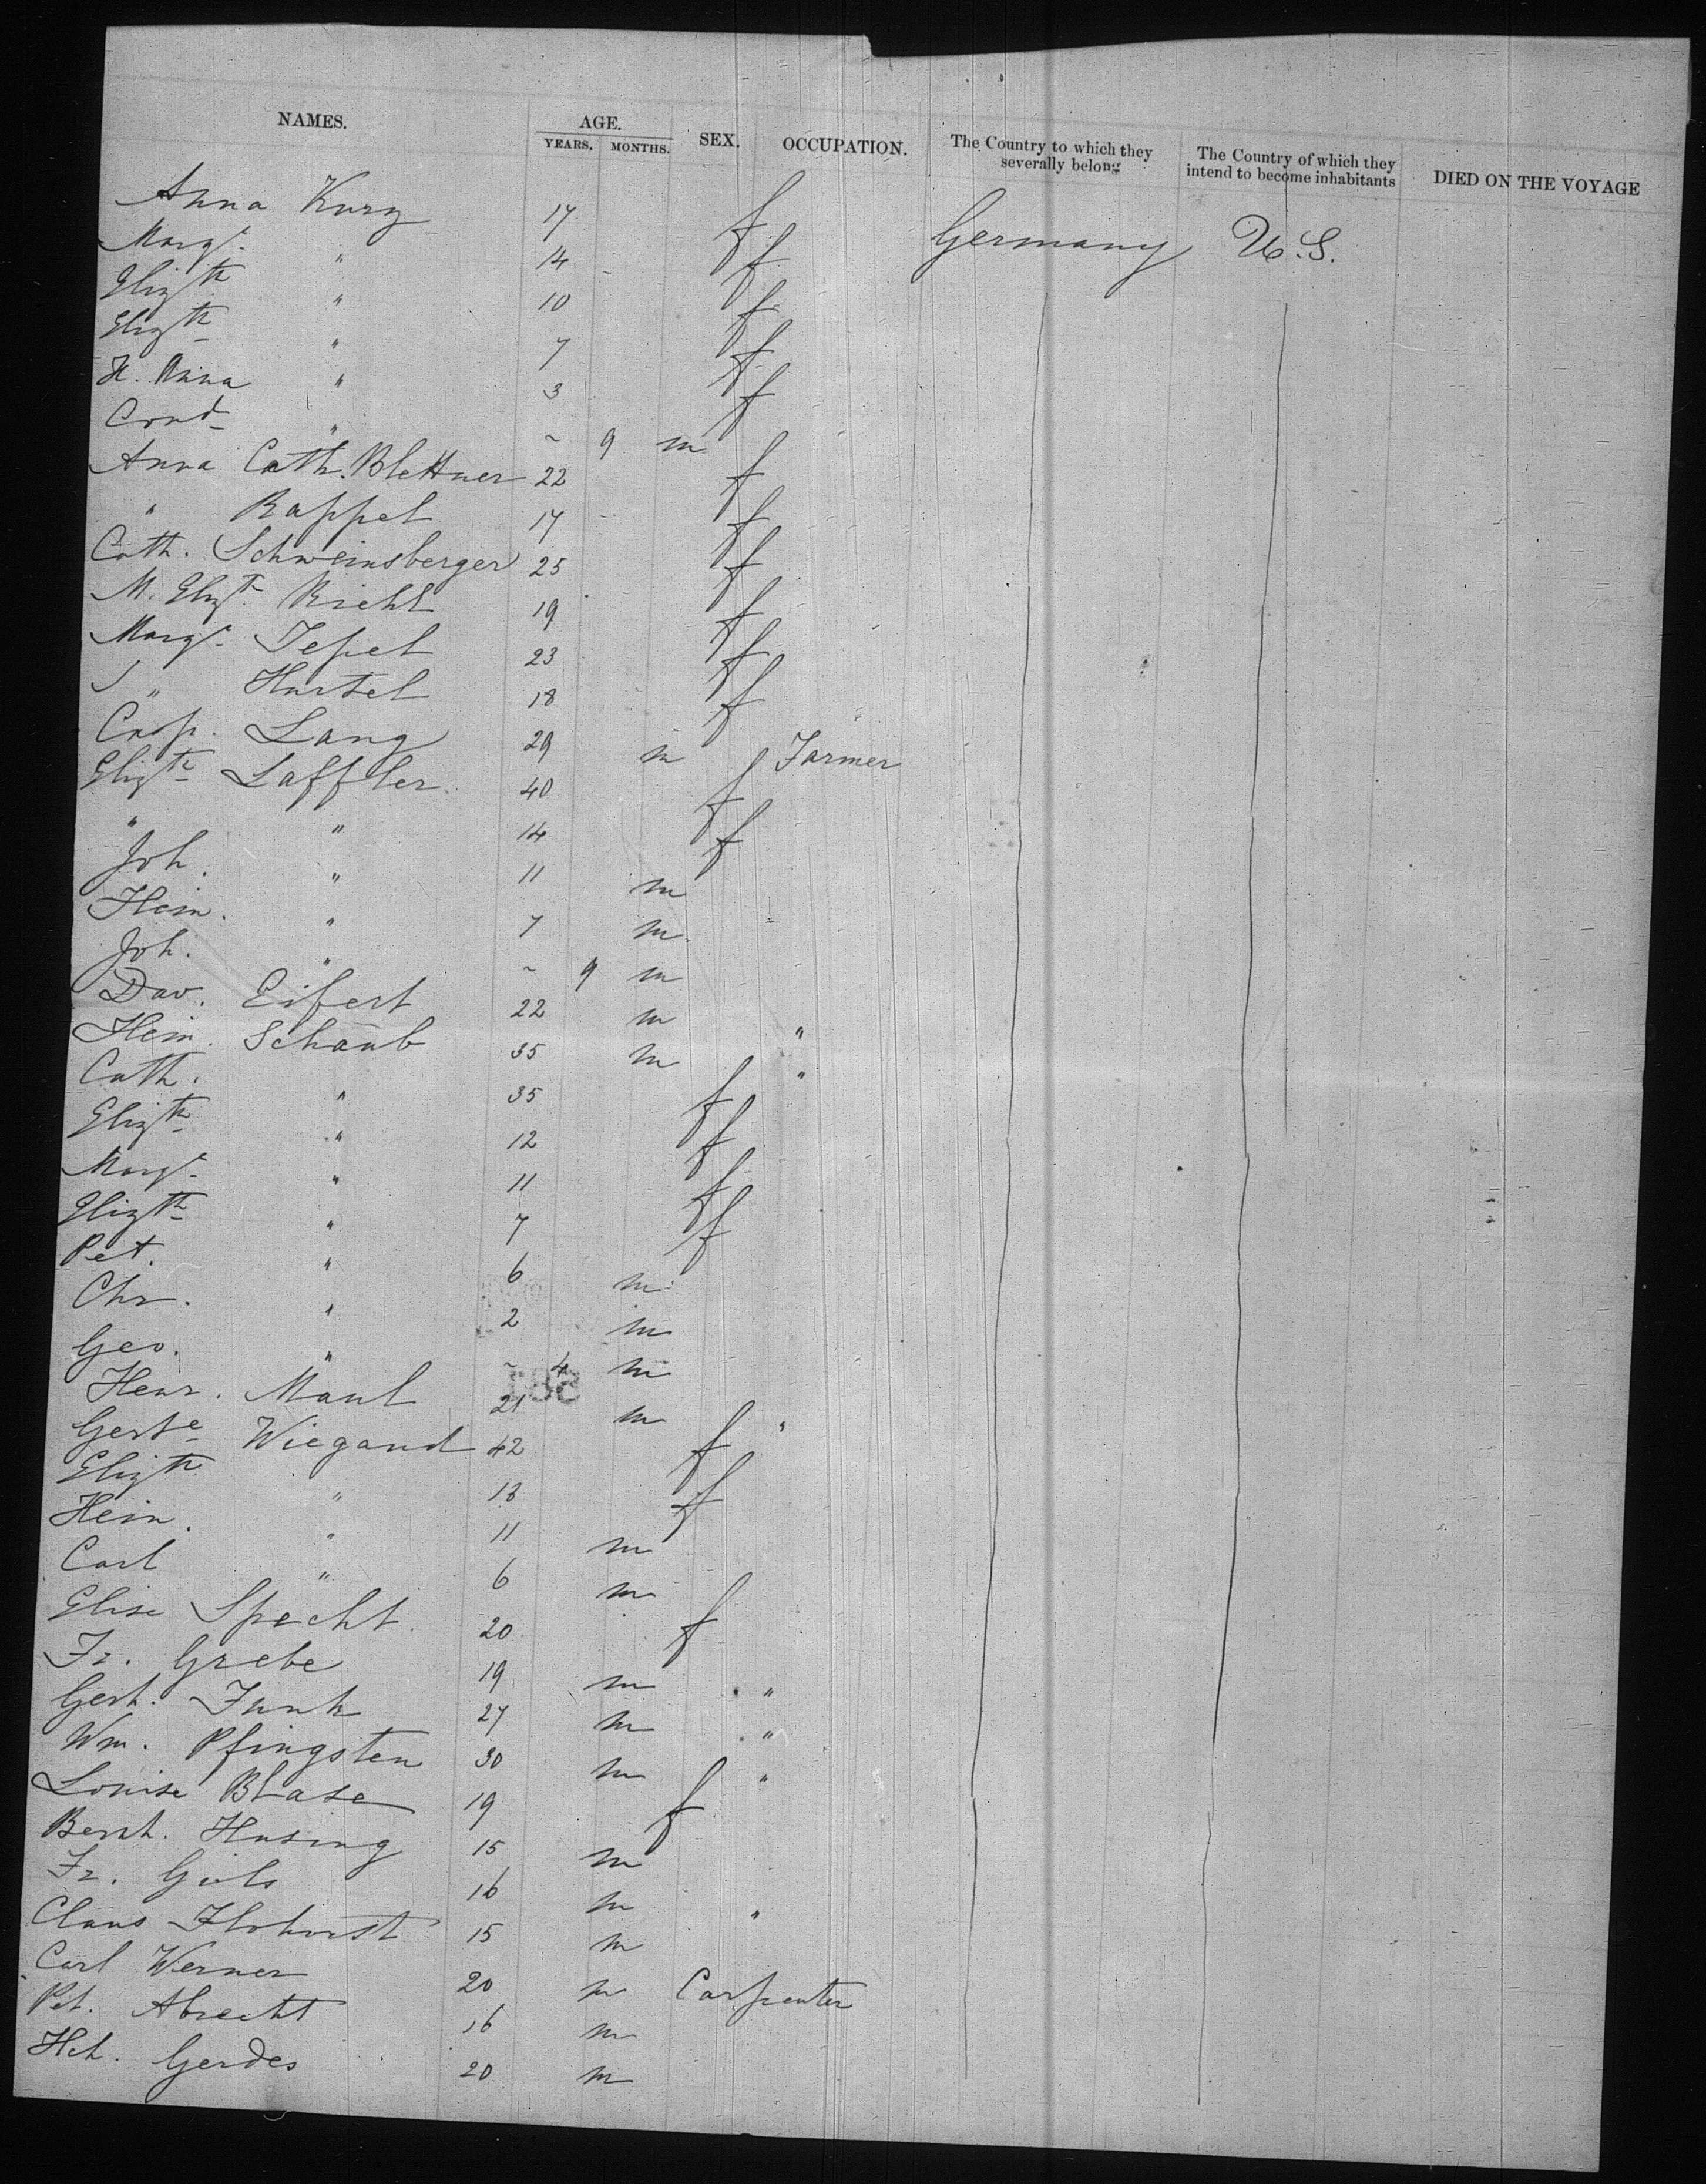 NAMES. AGE. YEARS. MONTHS. SEX. OCCUPATION. The Country to which they severally belong The Country of which they intend to become inhabitants DIED ON THE VOYAGE
Anna Kurz 17 f Germany U.S.
Margt. " 14 f
Elizth " 10 f
Elizth " 7 f
K. Anna " 3 f
Cond " ~ 9 m
Anna Cath. Blettner 22 f
" Rappel 17 f
Cath. Schweinsberger 25 f
M. Elizt. Riehl 19 f
Margt. Tepel 23 f
" Hartel 18 f
Casp. Lang 29 m Farmer
Elizth Laffler 40 f
" " 14 f
Joh. " 11 m
Hein. " 7 m
Joh. " ~ 9 m
Dav. Eifert 22 m "
Hein. Schaub 35 m "
Cath. " 35 f
Elizth " 12 f
Margt. " 11 f
Elizth " 7 f
Pet. " 6 m
Chr. " 2 m
Geo. " ~ 4 m
Henr. Maul 21 m "
Gerte Wiegand 42 f
Elizth " 13 f
Hein. " 11 m
Carl " 6 m
Elise Specht 20 f
Fr. Grebe 19 m "
Gerh. Funk 27 m "
Wm. Pfingsten 30 m "
Louise Blase 19 f
Bernh. Husing 15 m
Fr. 16 m "
Claus Flohorst 15 m
Carl Werner 20 m Carpenter
Pet. Abrecht 16 m
Hch. Gerdes 20 m